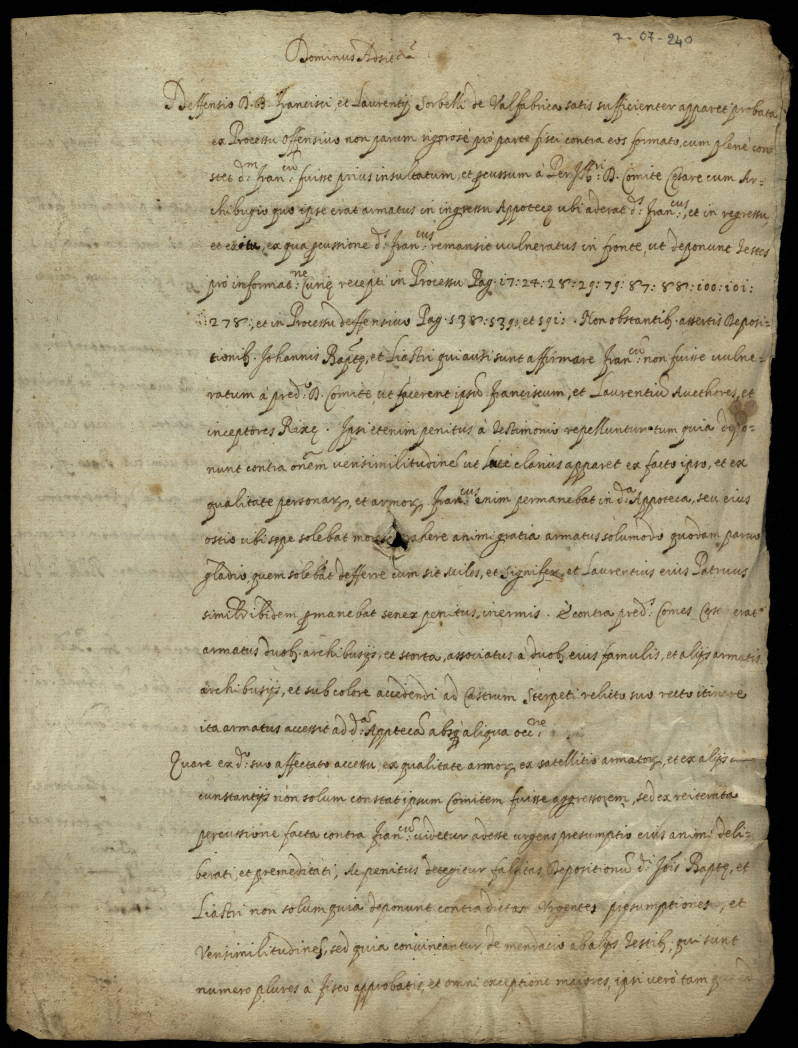 7-07-240
Dominus
Deffensio D. D. Francisci, et Laurentij Sorbelli de Valfabrica satis sufficienter apparet probata
ex Processu offensivo non parum rigorosè pro parte fisci contra eos formato, cum plenè con
stet d.m Fran.cũ fuisse prius insultatum, et pcussum à D. Comite Cesare cum Ar=
chibugio quo ipse erat armatus in ingressu Appotecę ubi aderat d.s Fran.cus, et in regressu,
et exitu, ex qua pcussione d.s Fran.cus remansit vulneratus in fronte, ut deponunt testes
pro informat.ne Curię recepti in Processu Pag. 17: 24: 28: 29: 79: 87: 88: 100: 101:
278:, et in Processu deffensivo Pag. 538: 539: et 591: . Non obstantib. assertis Deposi=
tionib. Johannis Baptę, et Liastri qui ausi sunt affirmare Fran.cũ non fuisse vulne=
ratum à pred.o D. Comite, ut facerent ipsũ Franciscum, et Laurentiũ Auctores, et
inceptores Rixę. Ipsi etenim penitus à testimonio repelluntur tum quia depo=
nunt contra oñem verisimilitudinẽ ut luce clarius apparet ex facto ipso, et ex
qualitate personarꝝ, et armorꝝ. Fran.cus enim permanebat in d.a Appoteca, seu eius
ostio ubi sępe solebat animi gratia armatus solumodo quodam parvo
gladio, quem solebat defferre cum sit Miles, et Signifer, et Laurentius eius Patruus
simil.r ibidem pmanebat senex penitus, inermis. È contra pred.s Comes Cęsar erat
armatus duob. archibusijs, et storta, associatus à duob. eius famulis, et alijs armatis
archibusijs, et sub colore accedendi ad Castrum Sterpeti relicto suo recto itinere
ita armatus accessit ad d.a Appotecã absq. aliqua occ.ne
Quare ex d.o suo affectato accessu, ex qualitate armorꝝ, ex satellitio armatorꝝ, et ex alijs
cunstantijs non solum constat ipsum Comitem fuisse aggressorem, sed ex reiterata
percussione facta contra Fran.cũ videtur adesse urgens presumptio eius animi deli=
berati, et premeditati, Ac penitus detegitur falsitas Depositionũ d. Jo.is Baptę, et
Liastri non solum quia deponunt contra dictas Urgentes presumptiones, et
Verisimilitudines, sed quia convincantur de mendacio ab alijs testib. qui sunt
numero plures à Fisco approbatis, et omni exceptione maiores, ipsi verò tam